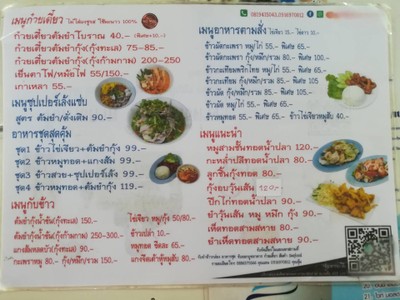 เมนูก๋วยเตี๋ยว
ก๋วยเตี๋ยวต้มยำโบราณ 40.– (พิเศษ+10.–)
ก๋วยเตี๋ยวต้มยำกุ้ง(กุ้งทะเล) 75–85.–
ก๋วยเตี๋ยวต้มยำกุ้ง(กุ้งก้ามกราม) 200–250
เย็นตาโฟ/หม้อไฟ 55/150.–
เกาเหลา 55.–
เมนูซุปเปอร์เล้งแซ่บ
สูตร ต้มยำ/ดั้งเดิม 90.–
อาหารชุดสุดคุ้ม
ชุด1 ข้าวไข่เจียว+ต้มยำกุ้ง 99.–
ชุด2 ข้าวหมูทอด+แกงส้ม 99.–
ชุด3 ข้าวสวย+ซุปเปอร์เล้ง 99.–
ชุด4 ข้าวหมูทอด+ต้มยำกุ้ง 119.–
เมนูกับข้าว
ต้มยำกุ้งน้ำข้น(กุ้งทะเล) 150.–
ต้มยำกุ้งน้ำข้น(กุ้งก้ามกราม) 250–300.–
แกงส้มชะอมไข่(กุ้งทะเล) 150.–
กะเพราหมู 80.– กุ้ง/หมึก/รวม 150.–
ไข่เจียว หมู/กุ้ง 50/80.–
ข้าวเปล่า 10.–
หมูทอด ขีดละ 65.–
แกงจืดเต้าหู้หมูสับ 80.–
เมนูอาหารตามสั่ง ไข่เจียว 15.– ไข่ดาว 10.–
ข้าวผัดกะเพรา หมู/ไก่ 55.– พิเศษ 65.–
กุ้ง/หมึก/รวม 80.– พิเศษ 100.–
ข้าวกระเทียมพริกไทย หมู/ไก่ 55.– พิเศษ 65.–
กุ้ง/หมึก/รวม 85.– พิเศษ 105.–
ข้าวไข่เจียวหมูสับ 40.–
เมนูแนะนำ
หมูสามชั้นทอดน้ำปลา 120.–
กะหล่ำปลีทอดน้ำปลา 80.–
ลูกชิ้นกุ้งทอด 80.–
กุ้งอบวุ้นเส้น
ปีกไก่ทอดน้ำปลา 90.–
ยำวุ้นเส้น หมู หมึก กุ้ง 90.–
เห็ดทอดสามสหาย 90.–
ยำเห็ดทอดสามสหาย 90.–